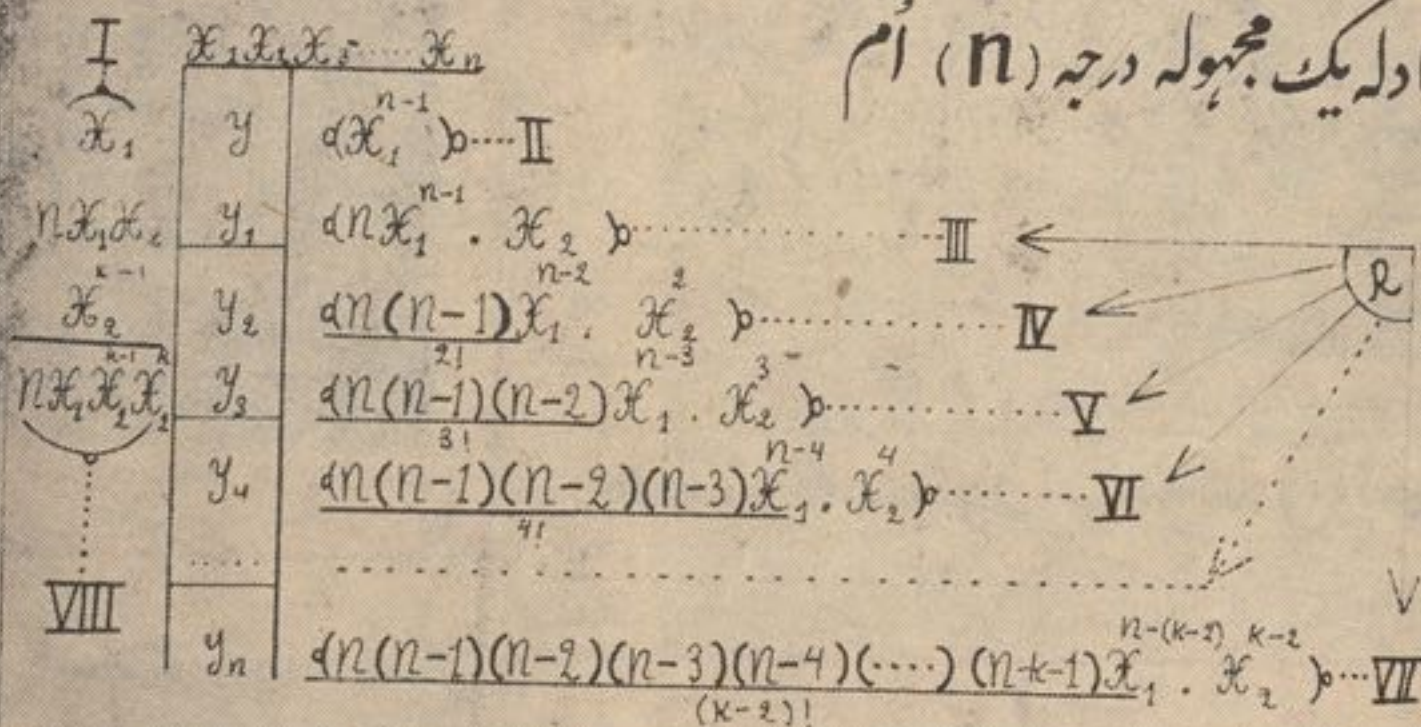 یک مجهوله درجه (n) اُم
I
X₁X₂X₃.....Xₙ
X₁ y α(X₁ⁿ⁻¹)....II
nX₁X₂ y₁ αnX₁ⁿ⁻¹ . X₂ ) ........ III
R
X₂ᵏ⁻¹ y₂ αn(n-1)X₁ⁿ⁻² . X₂² ) ........ IV
2!
nX₁X₂ᵏ⁻¹X₂ᵏ y₃ αn(n-1)(n-2)X₁ⁿ⁻³ . X₂³ ) ........ V
3!
y₄ αn(n-1)(n-2)(n-3)X₁ⁿ⁻⁴ . X₂⁴ ) ........ VI
4!
.....
VIII
yₙ αn(n-1)(n-2)(n-3)(n-4)(....)(n-k-1)X₁ⁿ⁻⁽ᵏ⁻²⁾ . X₂ᵏ⁻² ) ... VII
(k-2)!